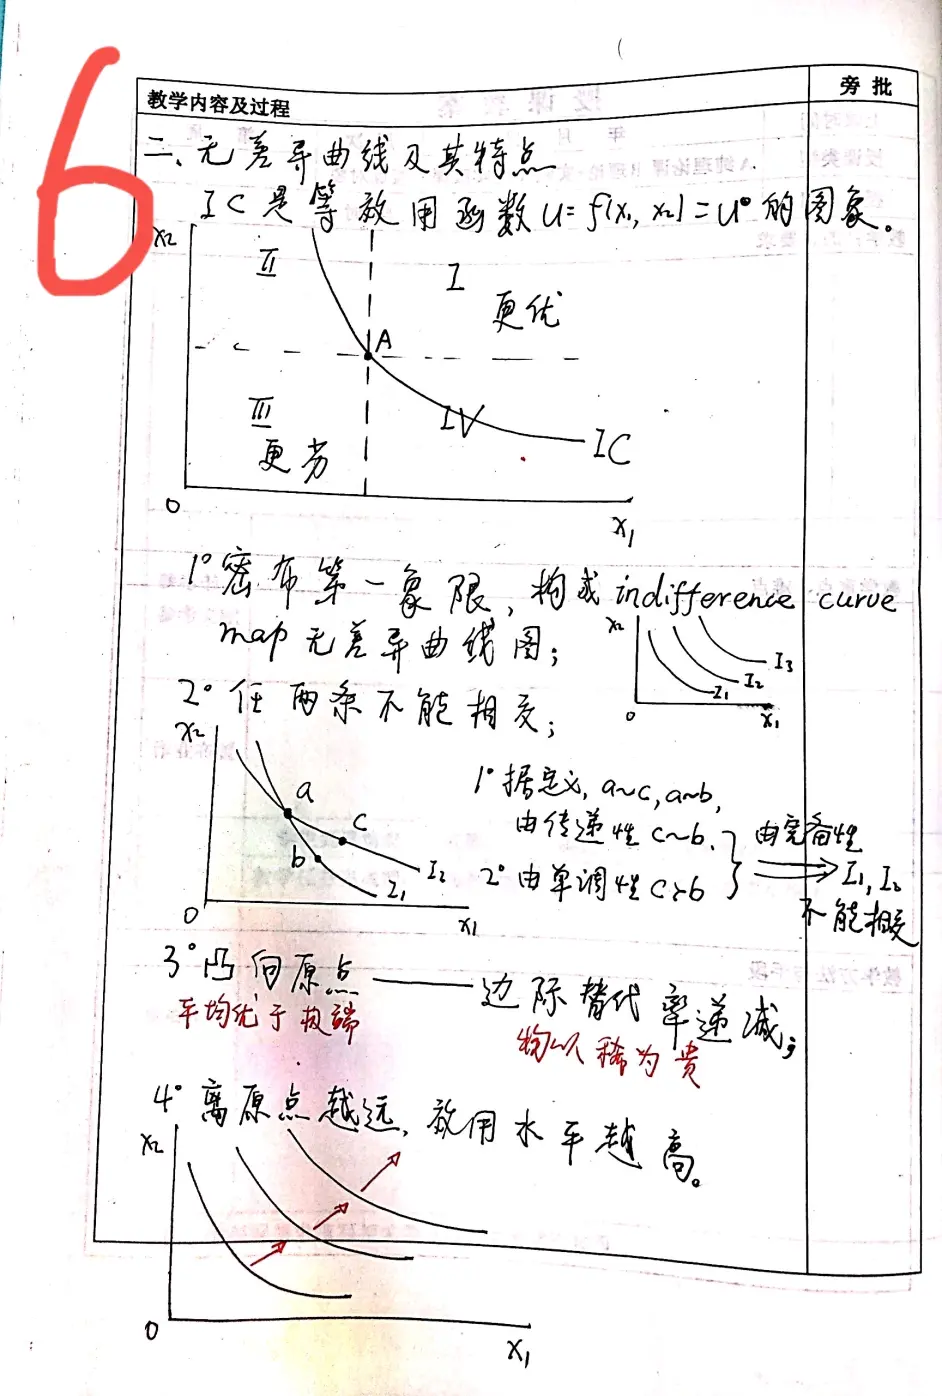 6
教学内容及过程
旁批
二、无差异曲线及其特点
IC是等效用函数 u=f(x₁, x₂)=u⁰的图象。
x₂
II
I
更优
A
III
更劣
IV
IC
0
x₁
1° 密布第一象限，构成indifference curve
map 无差异曲线图；
x₂
I₃
I₂
I₁
0
x₁
2° 任两条不能相交；
x₂
a
c
b
I₂
I₁
0
x₁
1° 据定义, a~c, a~b,
由传递性 c~b.
2° 由单调性 c≻b
由完备性
I₁, I₂
不能相交
3° 凸向原点——边际替代率递减；
平均优于极端
物以稀为贵
4° 离原点越远，效用水平越高。
x₂
0
x₁